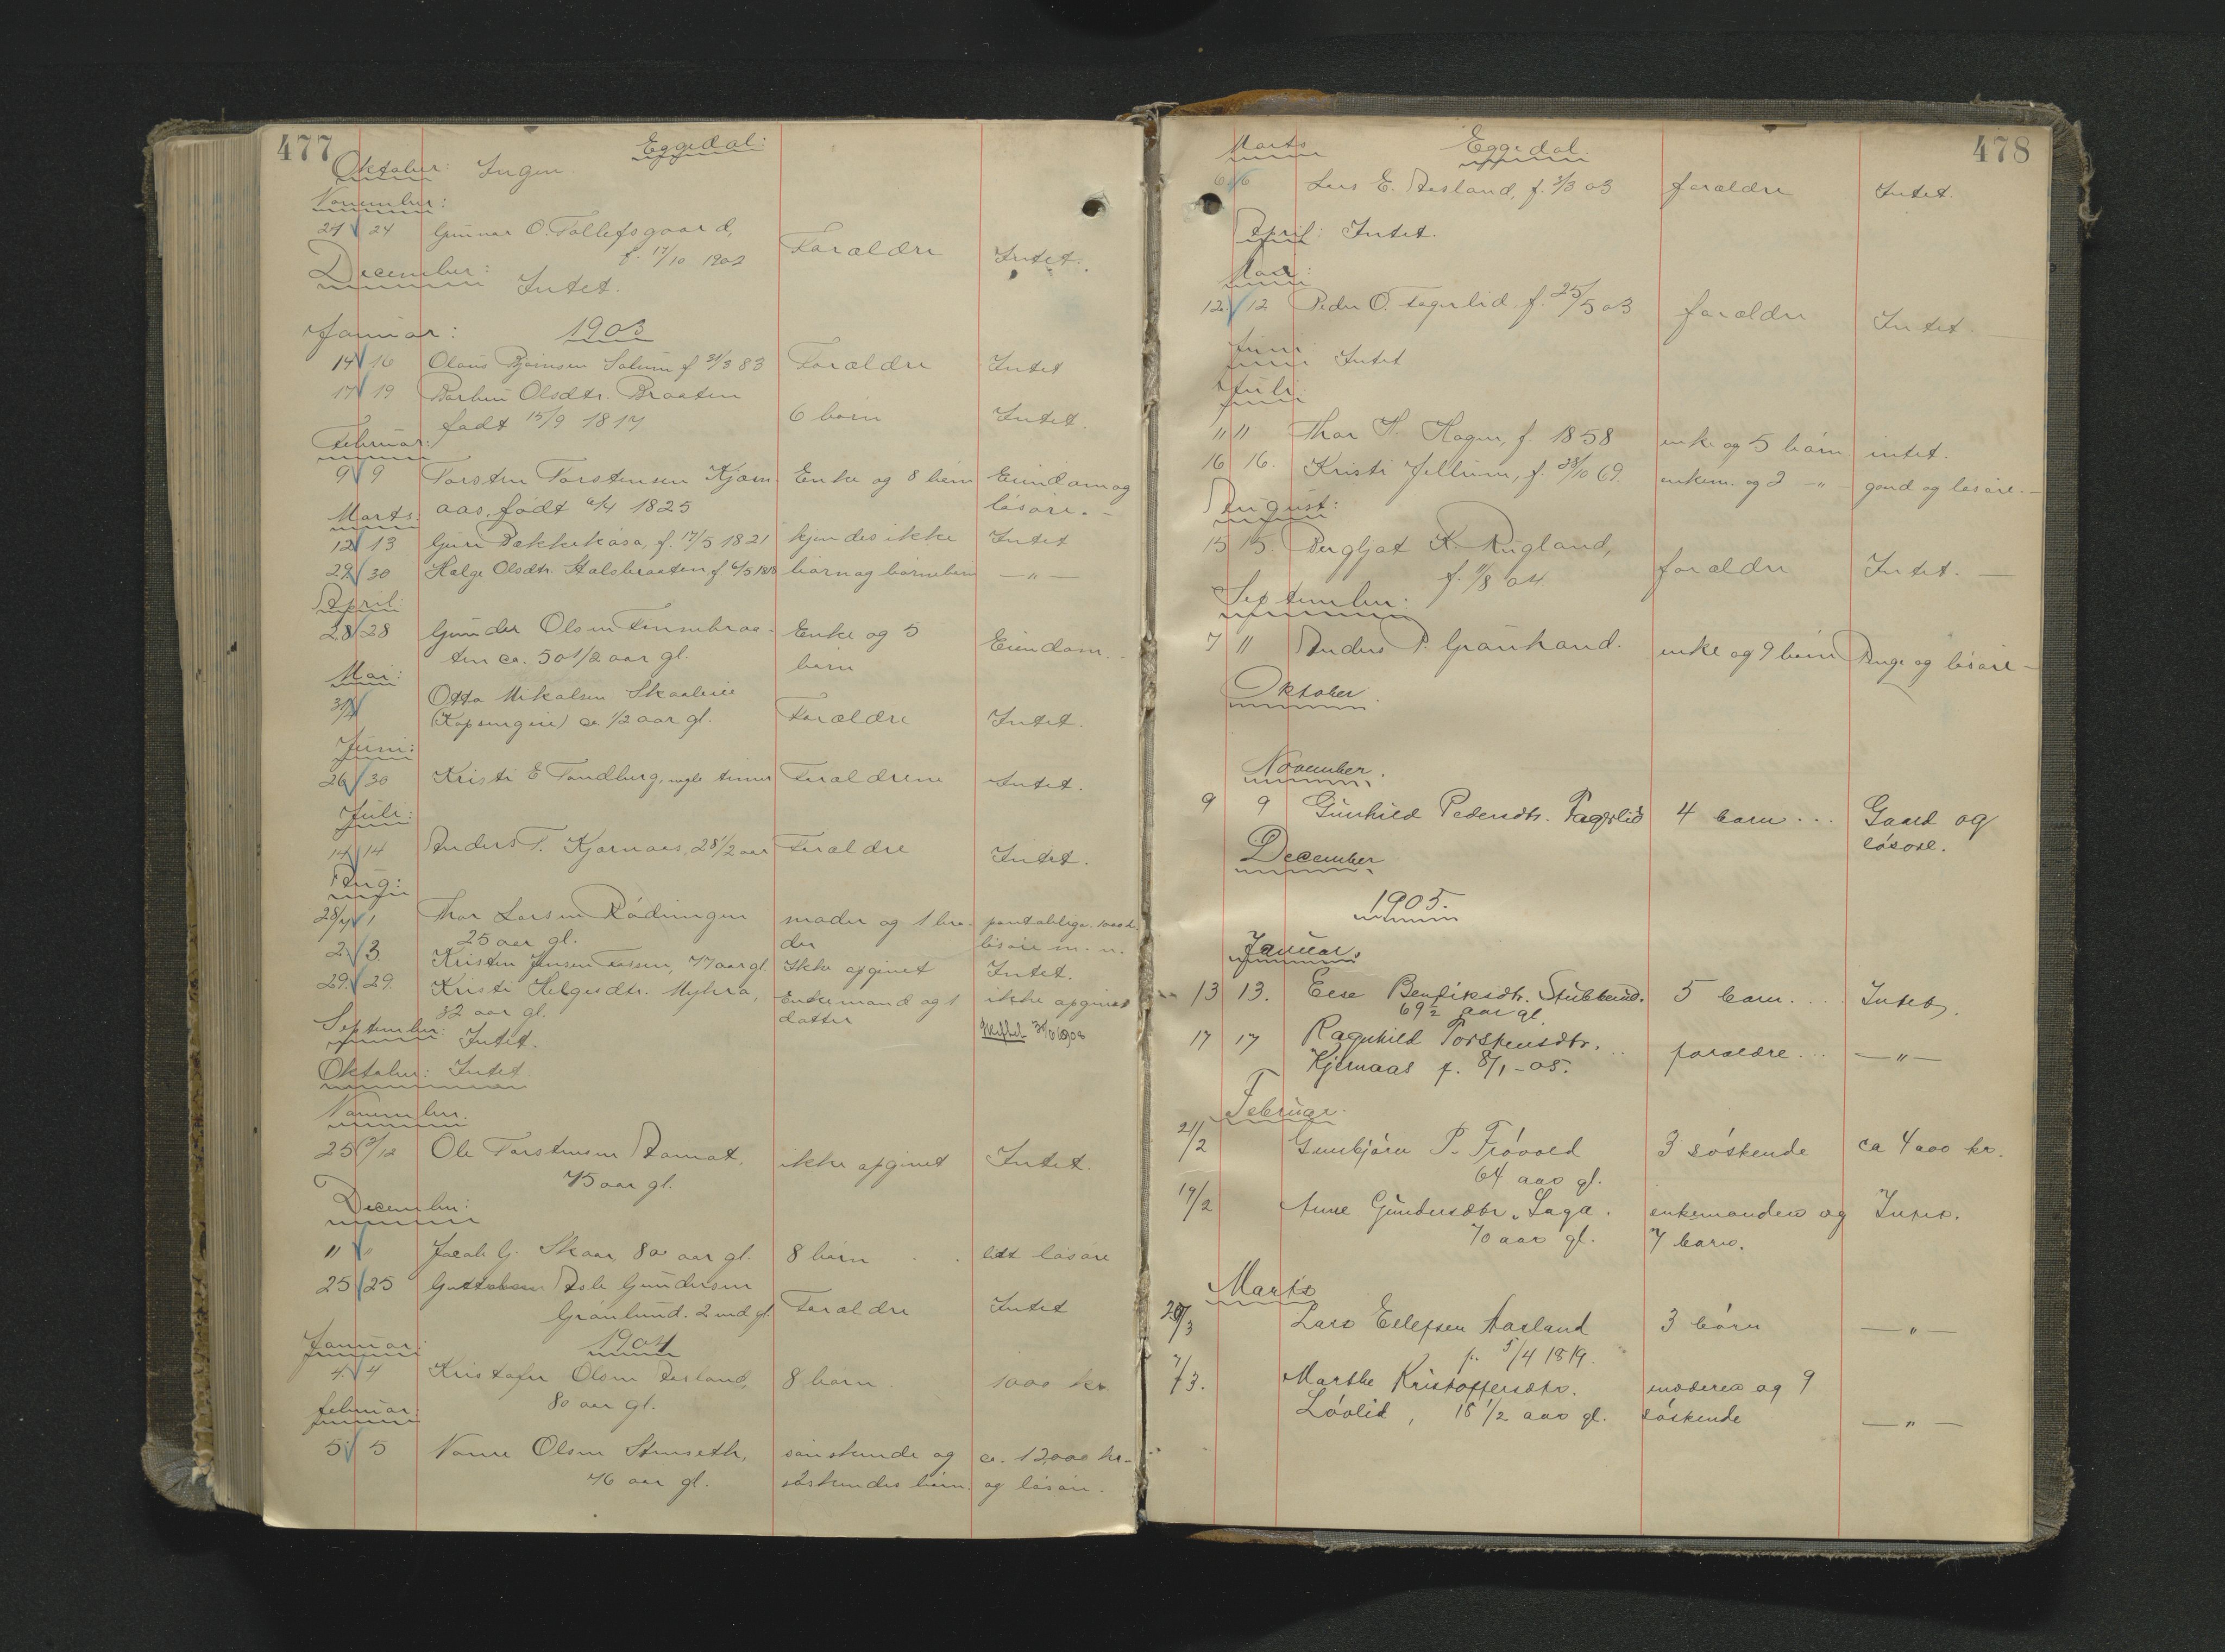 477
Eggedal:
Oktober: Ingen
November:
21 24 Gunnar O. Tollefsgaard,
f. 17/10 1902 Forældre Intet.
December: Intet.
Januar: 1903
14 16 Olaus Bjørnsen Solum f 31/3 83 Forældre Intet
17 19 Barbro Olsdtr. Braaten
født 15/9 1817 6 børn Intet.
Februar:
9 9 Torsten Torstensen Kjørn- Enke og 8 børn Eiendom og
aas, født 6/4 1825 løsøre. -
Marts:
12 13 Guri Bækkekåsa, f. 17/5 1821 kjendes ikke Intet
29 30 Helge Olsdtr. Stalsbraaten f 6/5 1818 børn og børnebørn — " —
April:
28 28 Gunder Olsen Finnebraa- Enke og 5 Eiendom.
ten ca. 50 1/2 aar gl. børn
Mai:
31/4 Otto Mikalsen Skaalien
(Kopsengeie) ca. 1/2 aar gl. Forældre Intet.
Juni:
26 30 Kristi E Tandberg, nogle timer Forældrene Intet.
Juli:
14 14 Anders T. Kjørnaas, 28 1/2 aar Forældre Intet.
Aug:
28/7 1 Thor Larsen Rødningen moder og 1 bro- 1000 kr.
25 aar gl. der løsøre m. m.
2. 3. Kristen Jensen 77 aar gl. Ikke opgivet Intet.
29. 29. Kristi Helgesdtr. Myhra, Enkemand og 1 ikke opgivet
32 aar gl. datter
September: Intet.
Oktober: Intet.
November.
25 3/12 Ole Torstensen Aamot, ikke opgivet Intet.
75 aar gl.
December:
11 " Jacob G. Skaar, 80 aar gl. 8 børn . . lidt løsøre
25 25 Guttebarn Asle Gundersen
Grønlund. 2 md gl. Forældre Intet
Januar: 1904
4. 4 Kristofer Olsen Aasland, 8 børn. 1000 kr.
80 aar gl.
Februar:
5 5 Olsen Stenseth, søskende og ca. 12,000 kr.
76 aar gl. søskendes børn. og løsøre.
478
Marts Eggedal.
6 6 Lars E. Aasland, f. 3/3 03 forældre Intet.
April: Intet.
Mai:
12. 12 Peder O. Fagerlid, f. 25/5 03 forældre Intet.
Juni Intet
Juli:
11 11 Thor H. Hagen, f. 1858 enke og 5 børn intet.
16 16. Kristi Jellum, f. 28/10 69. enkem. og 2 — " — gaard og løsøre. -
August:
15 15. Bergljot K. Rugland,
f. 11/8 04. forældre Intet. —
September:
7 11 Anders P. Grønhand. enke og 9 børn Penge og løsøre -
Oktober.
November.
9 9 Gunhild Pedersdtr. Fagerlid 4 børn ... Gaard og
løsøre.
December
1905.
Januar.
13 13. Else Bendiksdtr. Stubberud. 5 børn. ... Intet.
69 1/2 aar gl.
17 17 Ragnhild Torstensdtr. forældre ... — " —
Kjernaas f. 8/1 - 05.
Februar.
21/2 Gunbjørn P. Frøvold 3 søskende ca 4000 kr.
64 aar gl.
19/2 Anne Gundersdtr. Laga. enkemanden og Intet.
70 aar gl. 7 barn.
Marts
20/3 Lars Ellefsen Aasland 3 børn — " —
f. 5/4 1819.
7/3. Marthe Kristoffersdtr. moderen og 9
Løvlid, 15 1/2 aar gl. søskende — " —